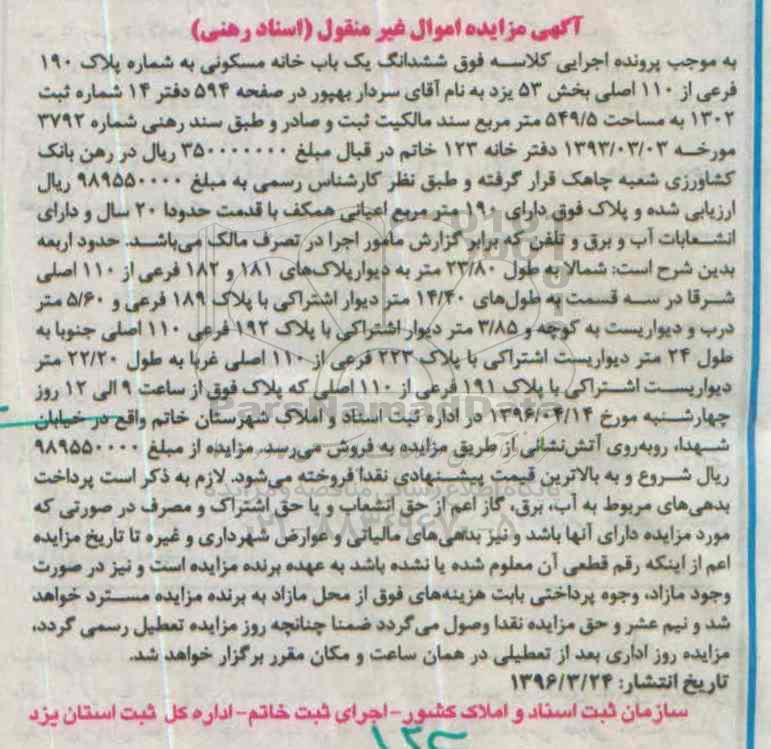 آگهی مزایده اموال غیر منقول (اسناد رهنی)
به موجب پرونده اجرایی کلاسه فوق ششدانگ یک باب خانه مسکونی به شماره پلاک ۱۹۰
فرعی از ۱۱۰ اصلی بخش ۵۳ یزد به نام آقای سردار بهپور در صفحه ۵۹۴ دفتر ۱۴ شماره ثبت
۱۳۰۲ به مساحت ۵۴۹/۵ متر مربع سند مالکیت ثبت و صادر و طبق سند رهنی شماره ۳۷۹۲
مورخه ۱۳۹۳/۰۳/۰۳ دفتر خانه ۱۲۳ خاتم در قبال مبلغ ۳۵۰۰۰۰۰۰۰ ریال در رهن بانک
کشاورزی شعبه چاهک قرار گرفته و طبق نظر کارشناس رسمی به مبلغ ۹۸۹۵۵۰۰۰۰ ریال
ارزیابی شده و پلاک فوق دارای ۱۹۰ متر مربع اعیانی همکف با قدمت حدودا ۲۰ سال و دارای
انشعابات آب و برق و تلفن که برابر گزارش مامور اجرا در تصرف مالک می‌باشد. حدود اربعه
بدین شرح است: شمالا به طول ۲۳/۸۰ متر به دیوارپلاک‌های ۱۸۱ و ۱۸۲ فرعی از ۱۱۰ اصلی
شرقا در سه قسمت به طول‌های ۱۴/۴۰ متر دیوار اشتراکی با پلاک ۱۸۹ فرعی و ۵/۶۰ متر
درب و دیواریست به کوچه و ۳/۸۵ متر دیوار اشتراکی با پلاک ۱۹۲ فرعی ۱۱۰ اصلی جنوبا به
طول ۲۴ متر دیواریست اشتراکی با پلاک ۲۲۳ فرعی از ۱۱۰ اصلی غربا به طول ۲۲/۲۰ متر
دیواریست اشتراکی با پلاک ۱۹۱ فرعی از ۱۱۰ اصلی که پلاک فوق از ساعت ۹ الی ۱۲ روز
چهارشنبه مورخ ۱۳۹۶/۰۴/۱۴ در اداره ثبت اسناد و املاک شهرستان خاتم واقع در خیابان
شهدا، روبه‌روی آتش‌نشانی از طریق مزایده به فروش می‌رسد. مزایده از مبلغ ۹۸۹۵۵۰۰۰۰
ریال شروع و به بالاترین قیمت پیشنهادی نقدا فروخته می‌شود. لازم به ذکر است پرداخت
بدهی‌های مربوط به آب، برق، گاز اعم از حق انشعاب و یا حق اشتراک و مصرف در صورتی که
مورد مزایده دارای آنها باشد و نیز بدهی‌های مالیاتی و عوارض شهرداری و غیره تا تاریخ مزایده
اعم از اینکه رقم قطعی آن معلوم شده یا نشده باشد به عهده برنده مزایده است و نیز در صورت
وجود مازاد، وجوه پرداختی بابت هزینه‌های فوق از محل مازاد به برنده مزایده مسترد خواهد
شد و نیم عشر و حق مزایده نقدا وصول می‌گردد ضمنا چنانچه روز مزایده تعطیل رسمی گردد،
مزایده روز اداری بعد از تعطیلی در همان ساعت و مکان مقرر برگزار خواهد شد.
تاریخ انتشار: ۱۳۹۶/۳/۲۴
سازمان ثبت اسناد و املاک کشور-اجرای ثبت خاتم-اداره کل ثبت استان یزد
ParsNamadData